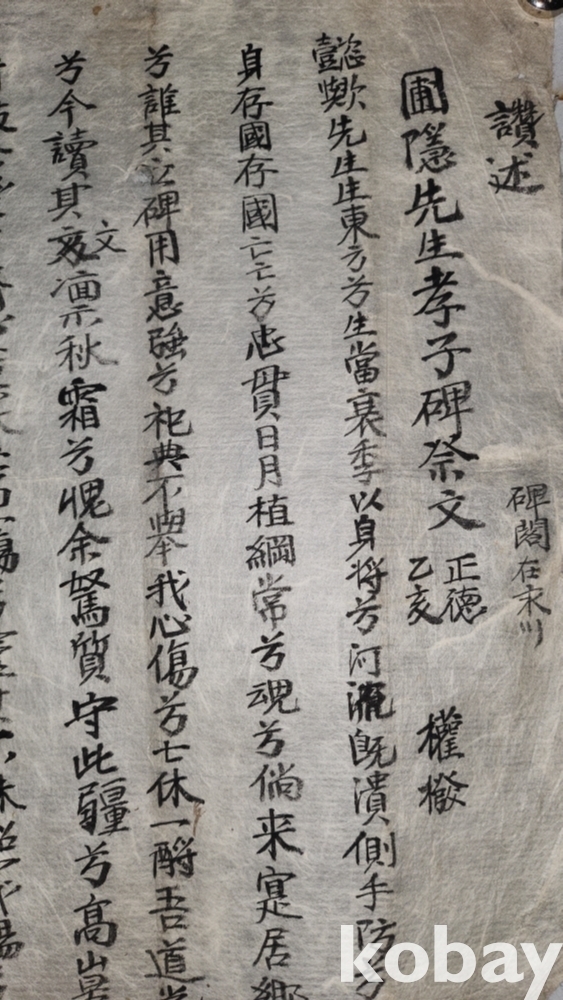 讚述
碑閣在永川
圃隱先生孝子碑祭文 正德
乙亥 權橃
懿歟先生生東方兮生當衰季以身將兮河流旣潰側手防兮
身存國存國亡亡兮忠貫日月植綱常兮魂兮倘来寔居鄉
兮誰其立碑用意強兮祀典不擧我心傷兮七休一酹吾道光
兮今讀其文凜秋霜兮愧余駑質守此疆兮高山景
kobay